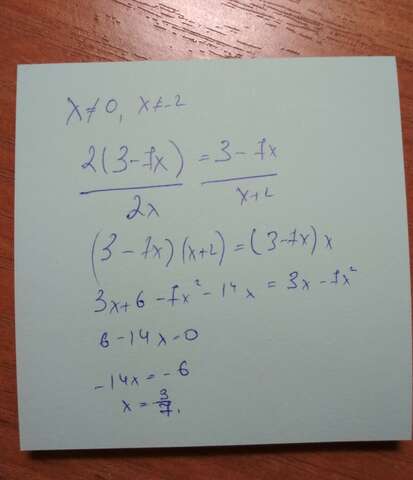 x≠0, x≠-2
2(3-7x)/2x = 3-7x/x+2
(3-7x)(x+2)=(3-7x)x
3x+6-7x²-14x=3x-7x²
6-14x=0
-14x=-6
x=3/7.